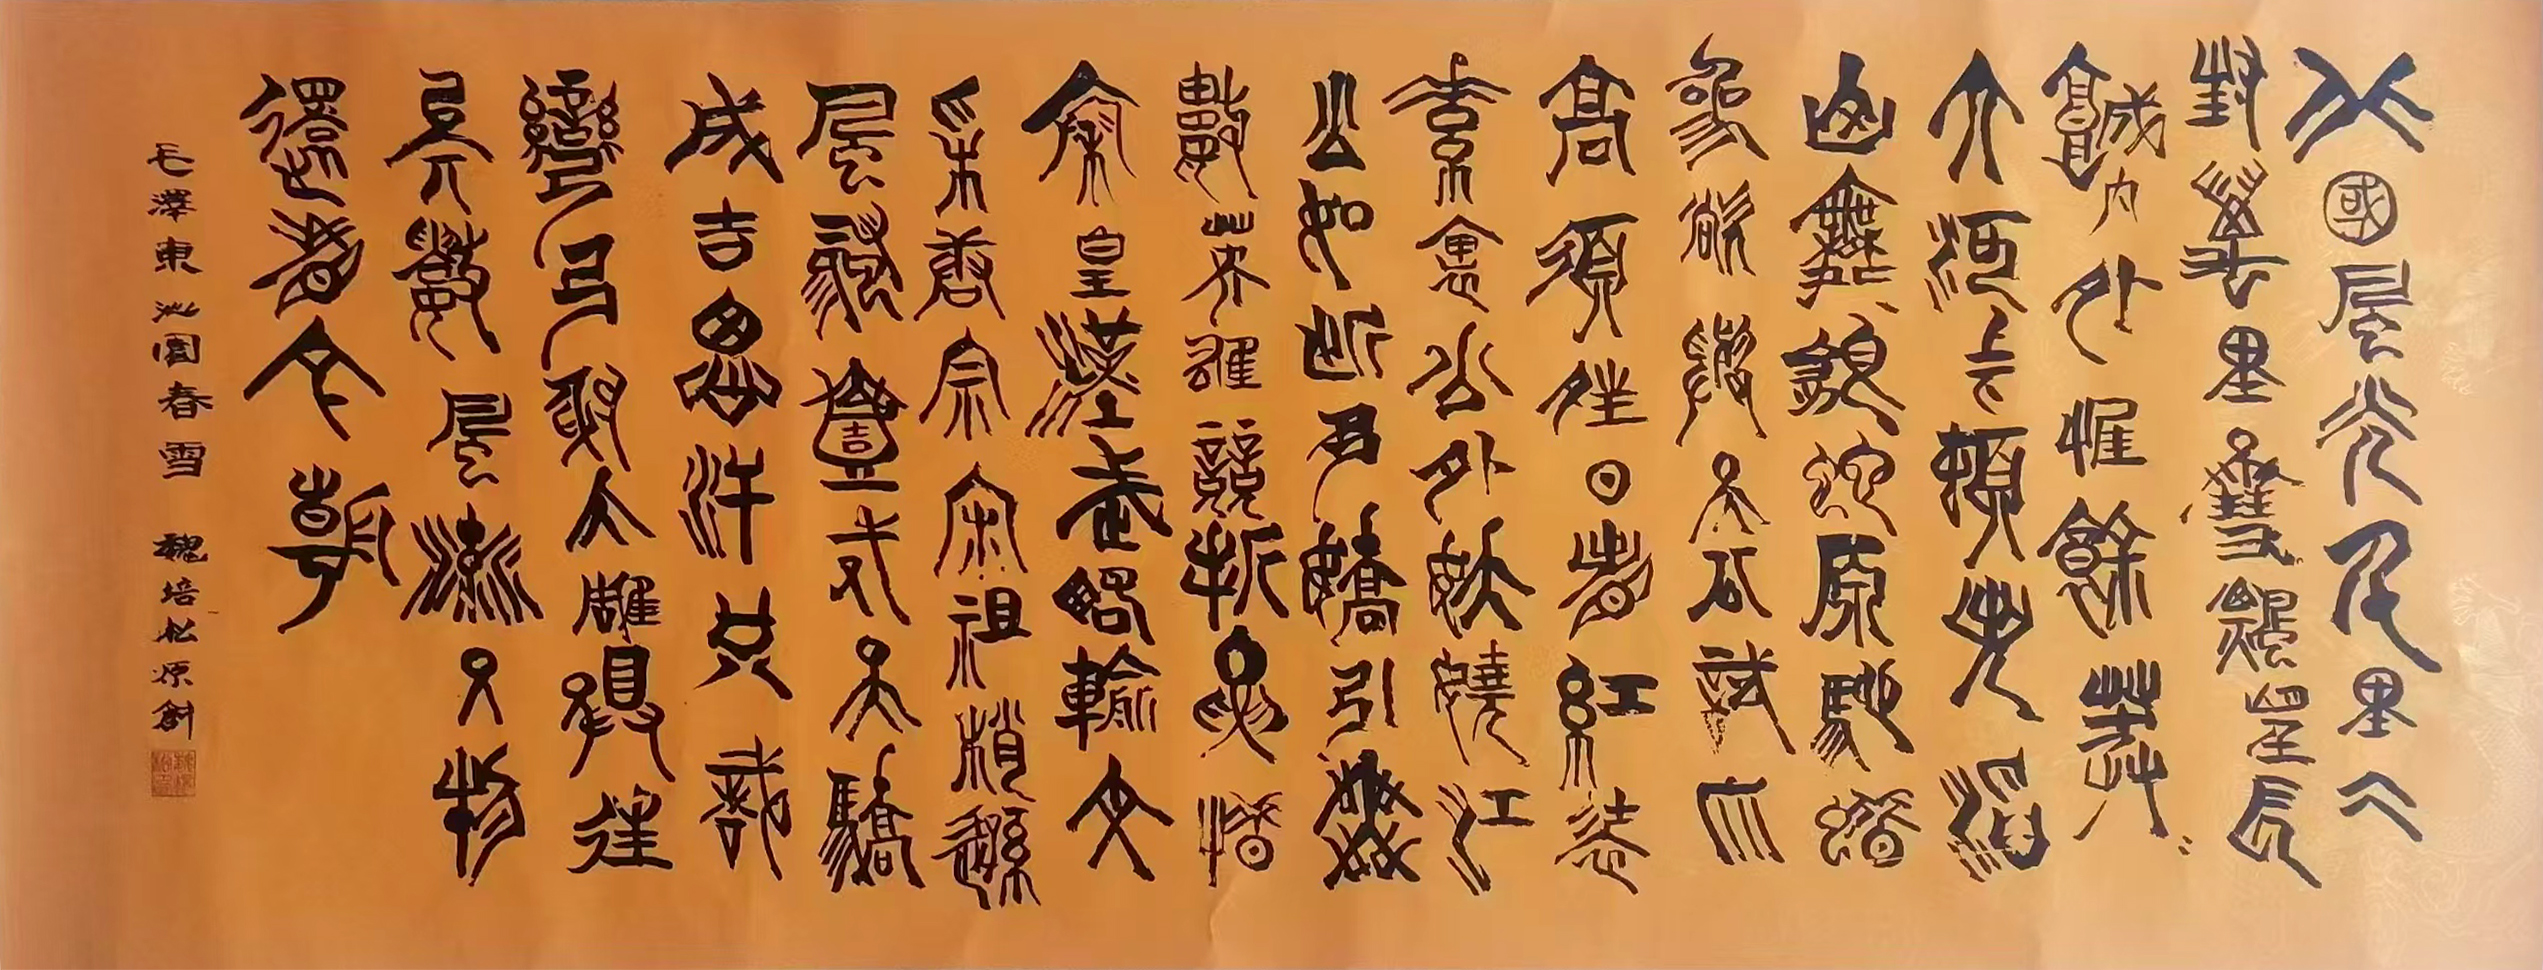 北國風光千里冰
封萬里雪飄望長
城內外惟餘莽〻
大河上下頓失滔〻
山舞銀蛇原馳蠟
象欲與天公試比
高須晴日看紅裝
素裹分外妖嬈江
山如此多嬌引無
數英雄競折腰惜
秦皇漢武略輸文
采唐宗宋祖稍遜
風騷一代天驕
成吉思汗只識
彎弓射大雕俱往
矣數風流人物
還看今朝
毛澤東沁園春雪 魏培松原創